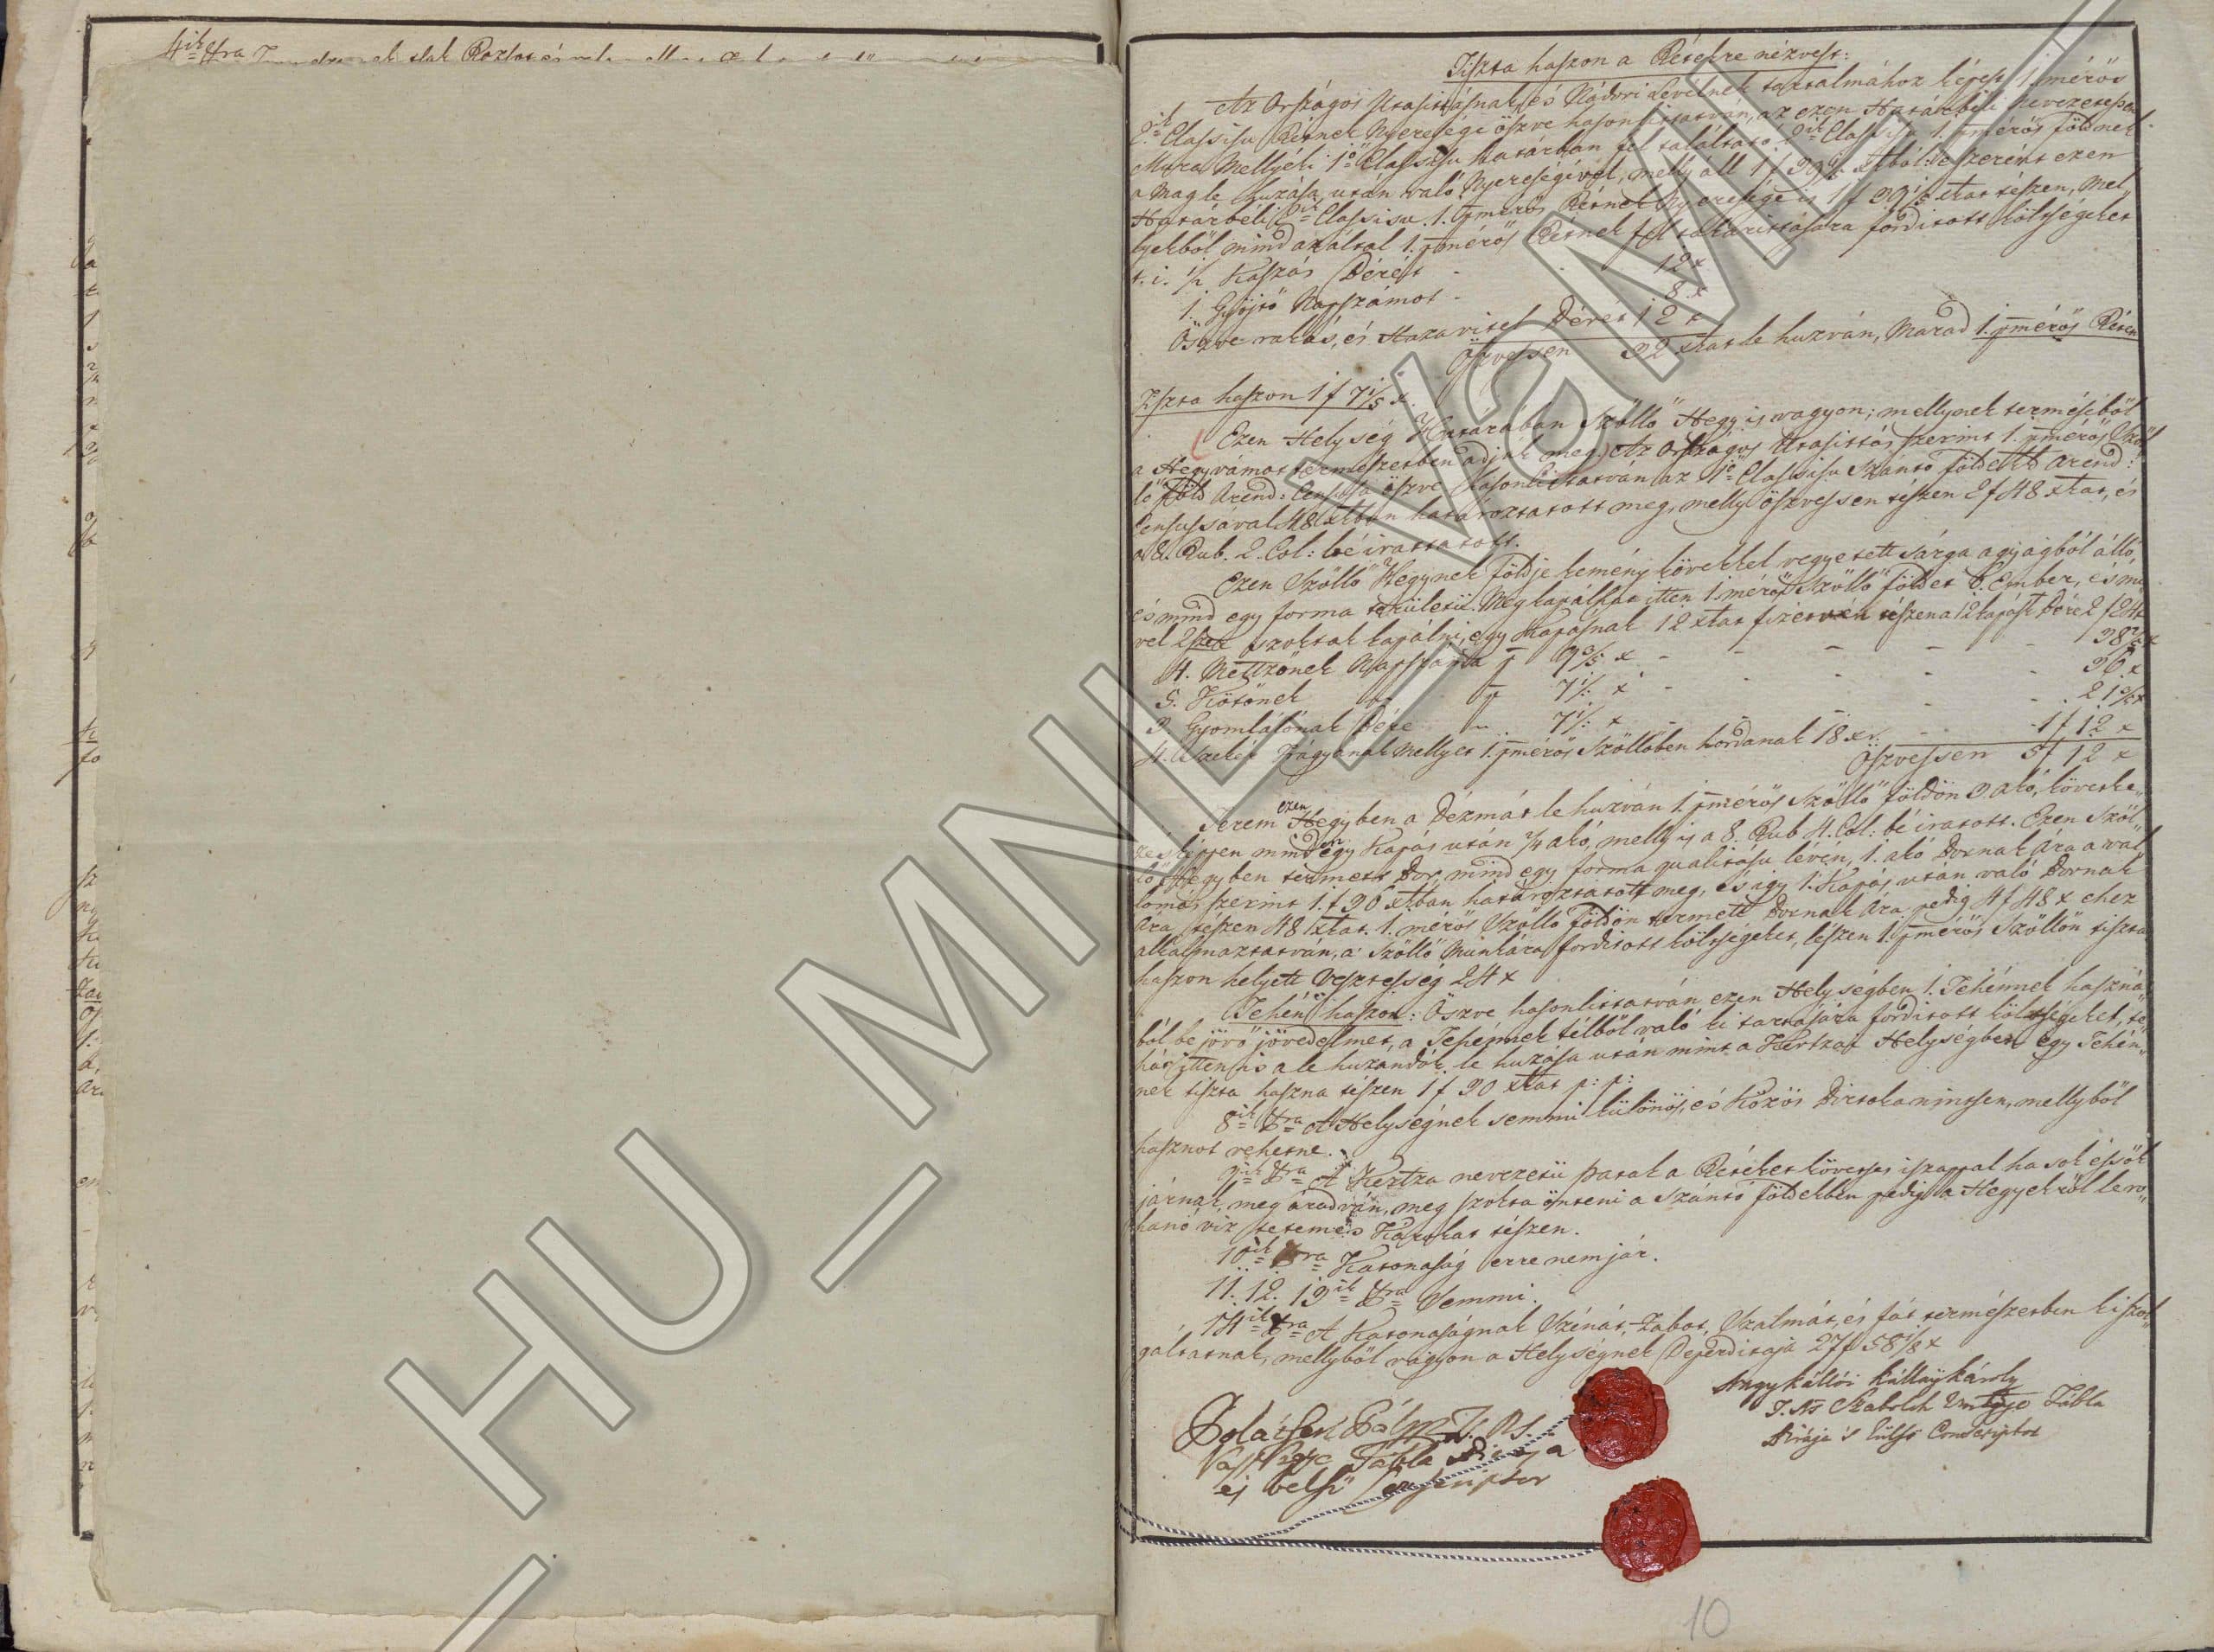 4ik Xra
Tiszta haszon a Rétekre nézvest:
Az Országos Utasitásnak, és Nádori Levélnek tartalmához képest 1. mérös
2ik Classisu Rétnek Nyeresége öszve hasonlittatván, az ezen Határbéli nevezetessen
Mura Mellyéki 1ö Classisu határban fel találtató 2ik Classisu 1. pmérös földnek
a Mag le huzása után való Nyereségével, melly áll 1 f 39 xkbol: e szerént ezen
Határbéli 2ik Classisu 1. pmérös Rétnek Nyeresége is 1 f 39 xkat tészen, mel„
lyekböl mind az által 1. pmérös Rétnek fel takarittására forditott költségeket
t. i. 1/2 Kaszás Bérét - 12 x
1. Gyöjtö Napszámot - 8 x
Öszve rakás, és Haza vitel Bérét 12 x
Öszvessen 32 xkat le huzván, Marad 1. pmérös Réten
Tiszta haszon 1 f 7 1/5 x.
Ezen Helység Határában Szöllö Hegy is vagyon; mellynek terméséböl
a Hegyvámot természetben adják meg. Az Országos Utasittás szerint 1. pmérös Szöl
lö föld Arend: Censusa öszve hasonlittatván az 1ö Classisu Szántó földekk Arend:
Censussával 48 xkban határoztatott meg, melly öszvessen tészen 2 f 48 xkat, és
a 8. Rub: 2. Col: bé irattatott.
Ezen Szöllö Hegynek földje kemény kövekkel vegyetett sárga agyagból álló,
és mind egy forma területü. Meg kapálhat itten 1. mérös Szöllö földet 6. Ember, és mi
vel 2szer szokták kapálni, egy Kapásnak 12 xkat fizetvén tészen a 12 kapást Bére 2 f 24 x
4. Mettzönek Napszáma p 9 3/5 x - - - - 38 2/5 x
5. Kötönek p 7 1/5 x - - - 36 x
3. Gyomlálónak Bére 7 1/5 x - - - 21 3/5 x
4. Szekér Trágyának mellyet 1. pmérös Szöllöben hordanak 18 x - - 1 f 12 x
Öszvessen 5 f 12 x
Terem ezen Hegyben a Dézmát le huzván 1. pmérös Szöllö földön 3. akó, következ„
zésképpen minden egy Kapás után 2/4 akó, melly is a 8. Rub 4. Col: bé iratott. Ezen Szöl„
lö Hegyben termett Bor mind egy forma qualitásu lévén, 1. akó Bornak Ára a val„
lomás szerint 1. f 36 xkban határoztatott meg, és igy 1. Kapás után való Bornak
Ára tészen 48 xkat. 1. mérös Szöllö földön termett Bornak Ára pedig 4 f 48 x ehez
alkalmaztatván, a Szöllö Munkára forditott költségeket, lészen 1. pmérös Szöllön tiszta
haszon helyett Vesztesség 24 x
Tehén haszon: Öszve hasonlittatván ezen Helységben 1. Tehénnek hasznái
ból bé jövö jövedelmet, a Tehénnek télböl való ki tartására forditott költségeket, te„
hát itten is a le huzandók le huzása után mint a Kertzai Helységben egy Tehén„
nek tiszta haszna tészen 1 f 30 xkat p: p:
8ik Xra A Helységnek semmi különös, és Közös Birtoka nintsen, mellyböl
hasznot vehetne.
9ik Xra A Kertza nevezetü patak a Réteket követses iszappal ha sok essök
járnak, meg áradván, meg szokta önteni a Szántó földekben pedig a Hegyekröl le ro„
hanó viz tetemes Károkat tészen.
10ik Xra Katonaság erre nem jár.
11. 12. 13ik Xra Semmi.
14ik Xra A Katonaságnak Szénát, Zabot, Szalmát, és fát természetben ki szol„
gáltatnak, mellyböl vagyon a Helységnek Deperditája 27 f 58 1/8 x
Nagykállói Kállay Károly
T. N. Szabolch Vmegye Tábla
Birája 's külsö Conscriptor
Vas Vgye Tábla Birája
és belsö Conscriptor
10
HU_MNL_VaML